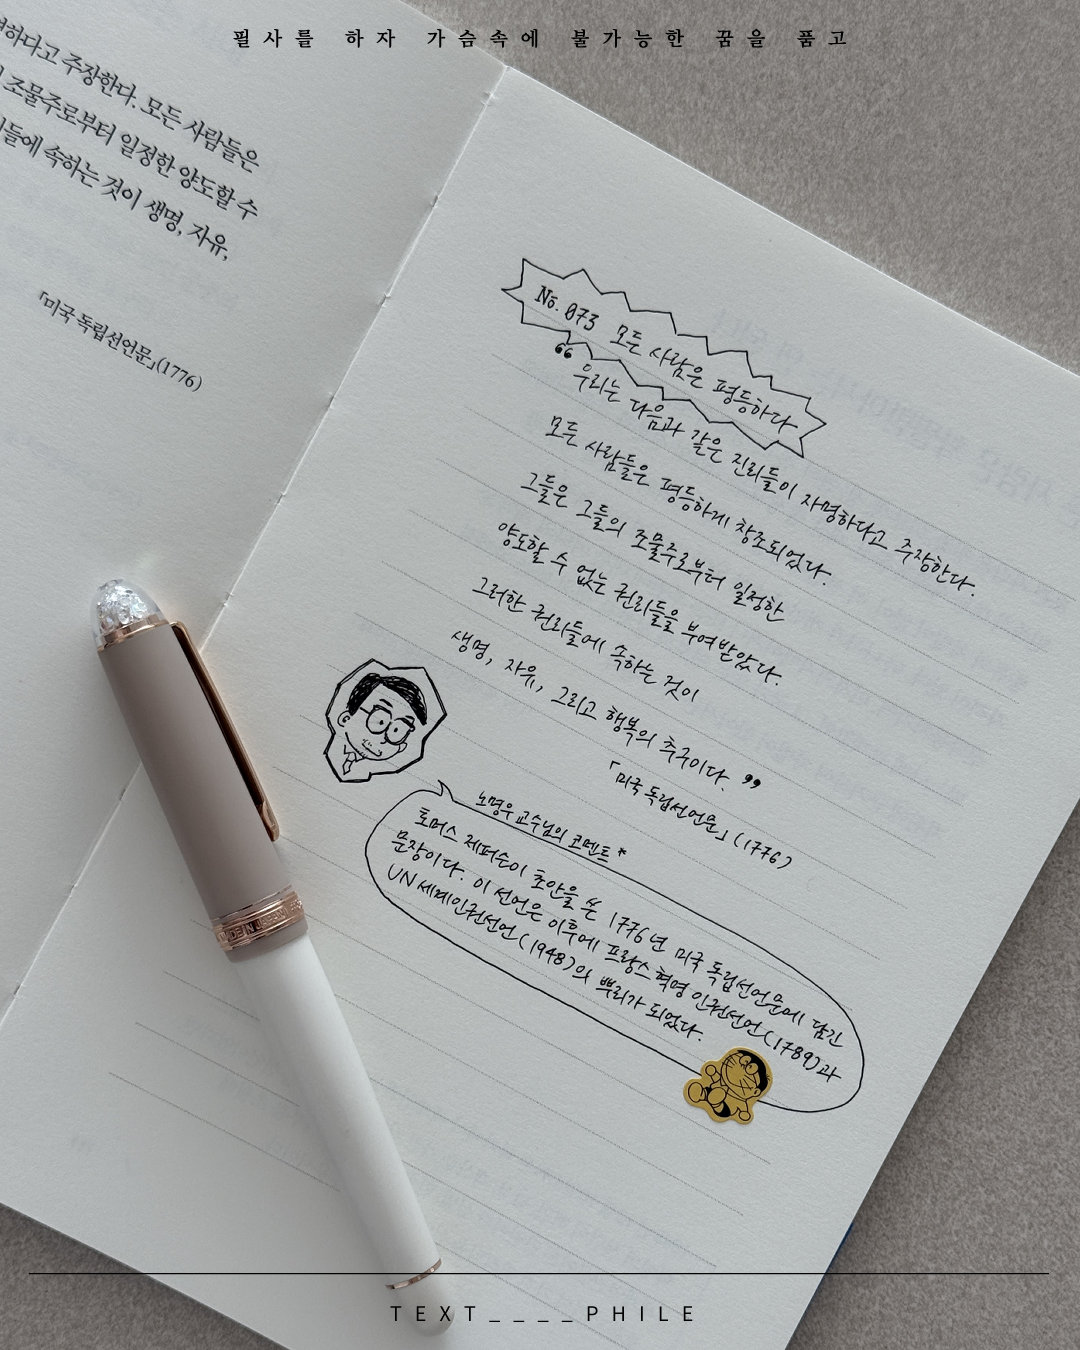 필사를 하자 가슴속에 불가능한 꿈을 품고
하다고 주장한다. 모든 사람들은
조물주로부터 일정한 양도할 수
들에 속하는 것이 생명, 자유,
「미국 독립선언문」(1776)
No. 073 모든 사람은 평등하다
“우리는 다음과 같은 진리들이 자명하다고 주장한다.
모든 사람들은 평등하게 창조되었다.
그들은 그들의 조물주로부터 일정한
양도할 수 없는 권리들을 부여받았다.
그러한 권리들에 속하는 것이
생명, 자유, 그리고 행복의 추구이다.”
「미국 독립선언문」(1776)
노명우 교수님의 코멘트*
토머스 제퍼슨이 초안을 쓴 1776년 미국 독립선언문에 담긴
문장이다. 이 선언은 이후에 프랑스 혁명 인권선언(1789)과
UN 세계인권선언(1948)의 뿌리가 되었다.
MADE IN JAPAN
TEXT____PHILE